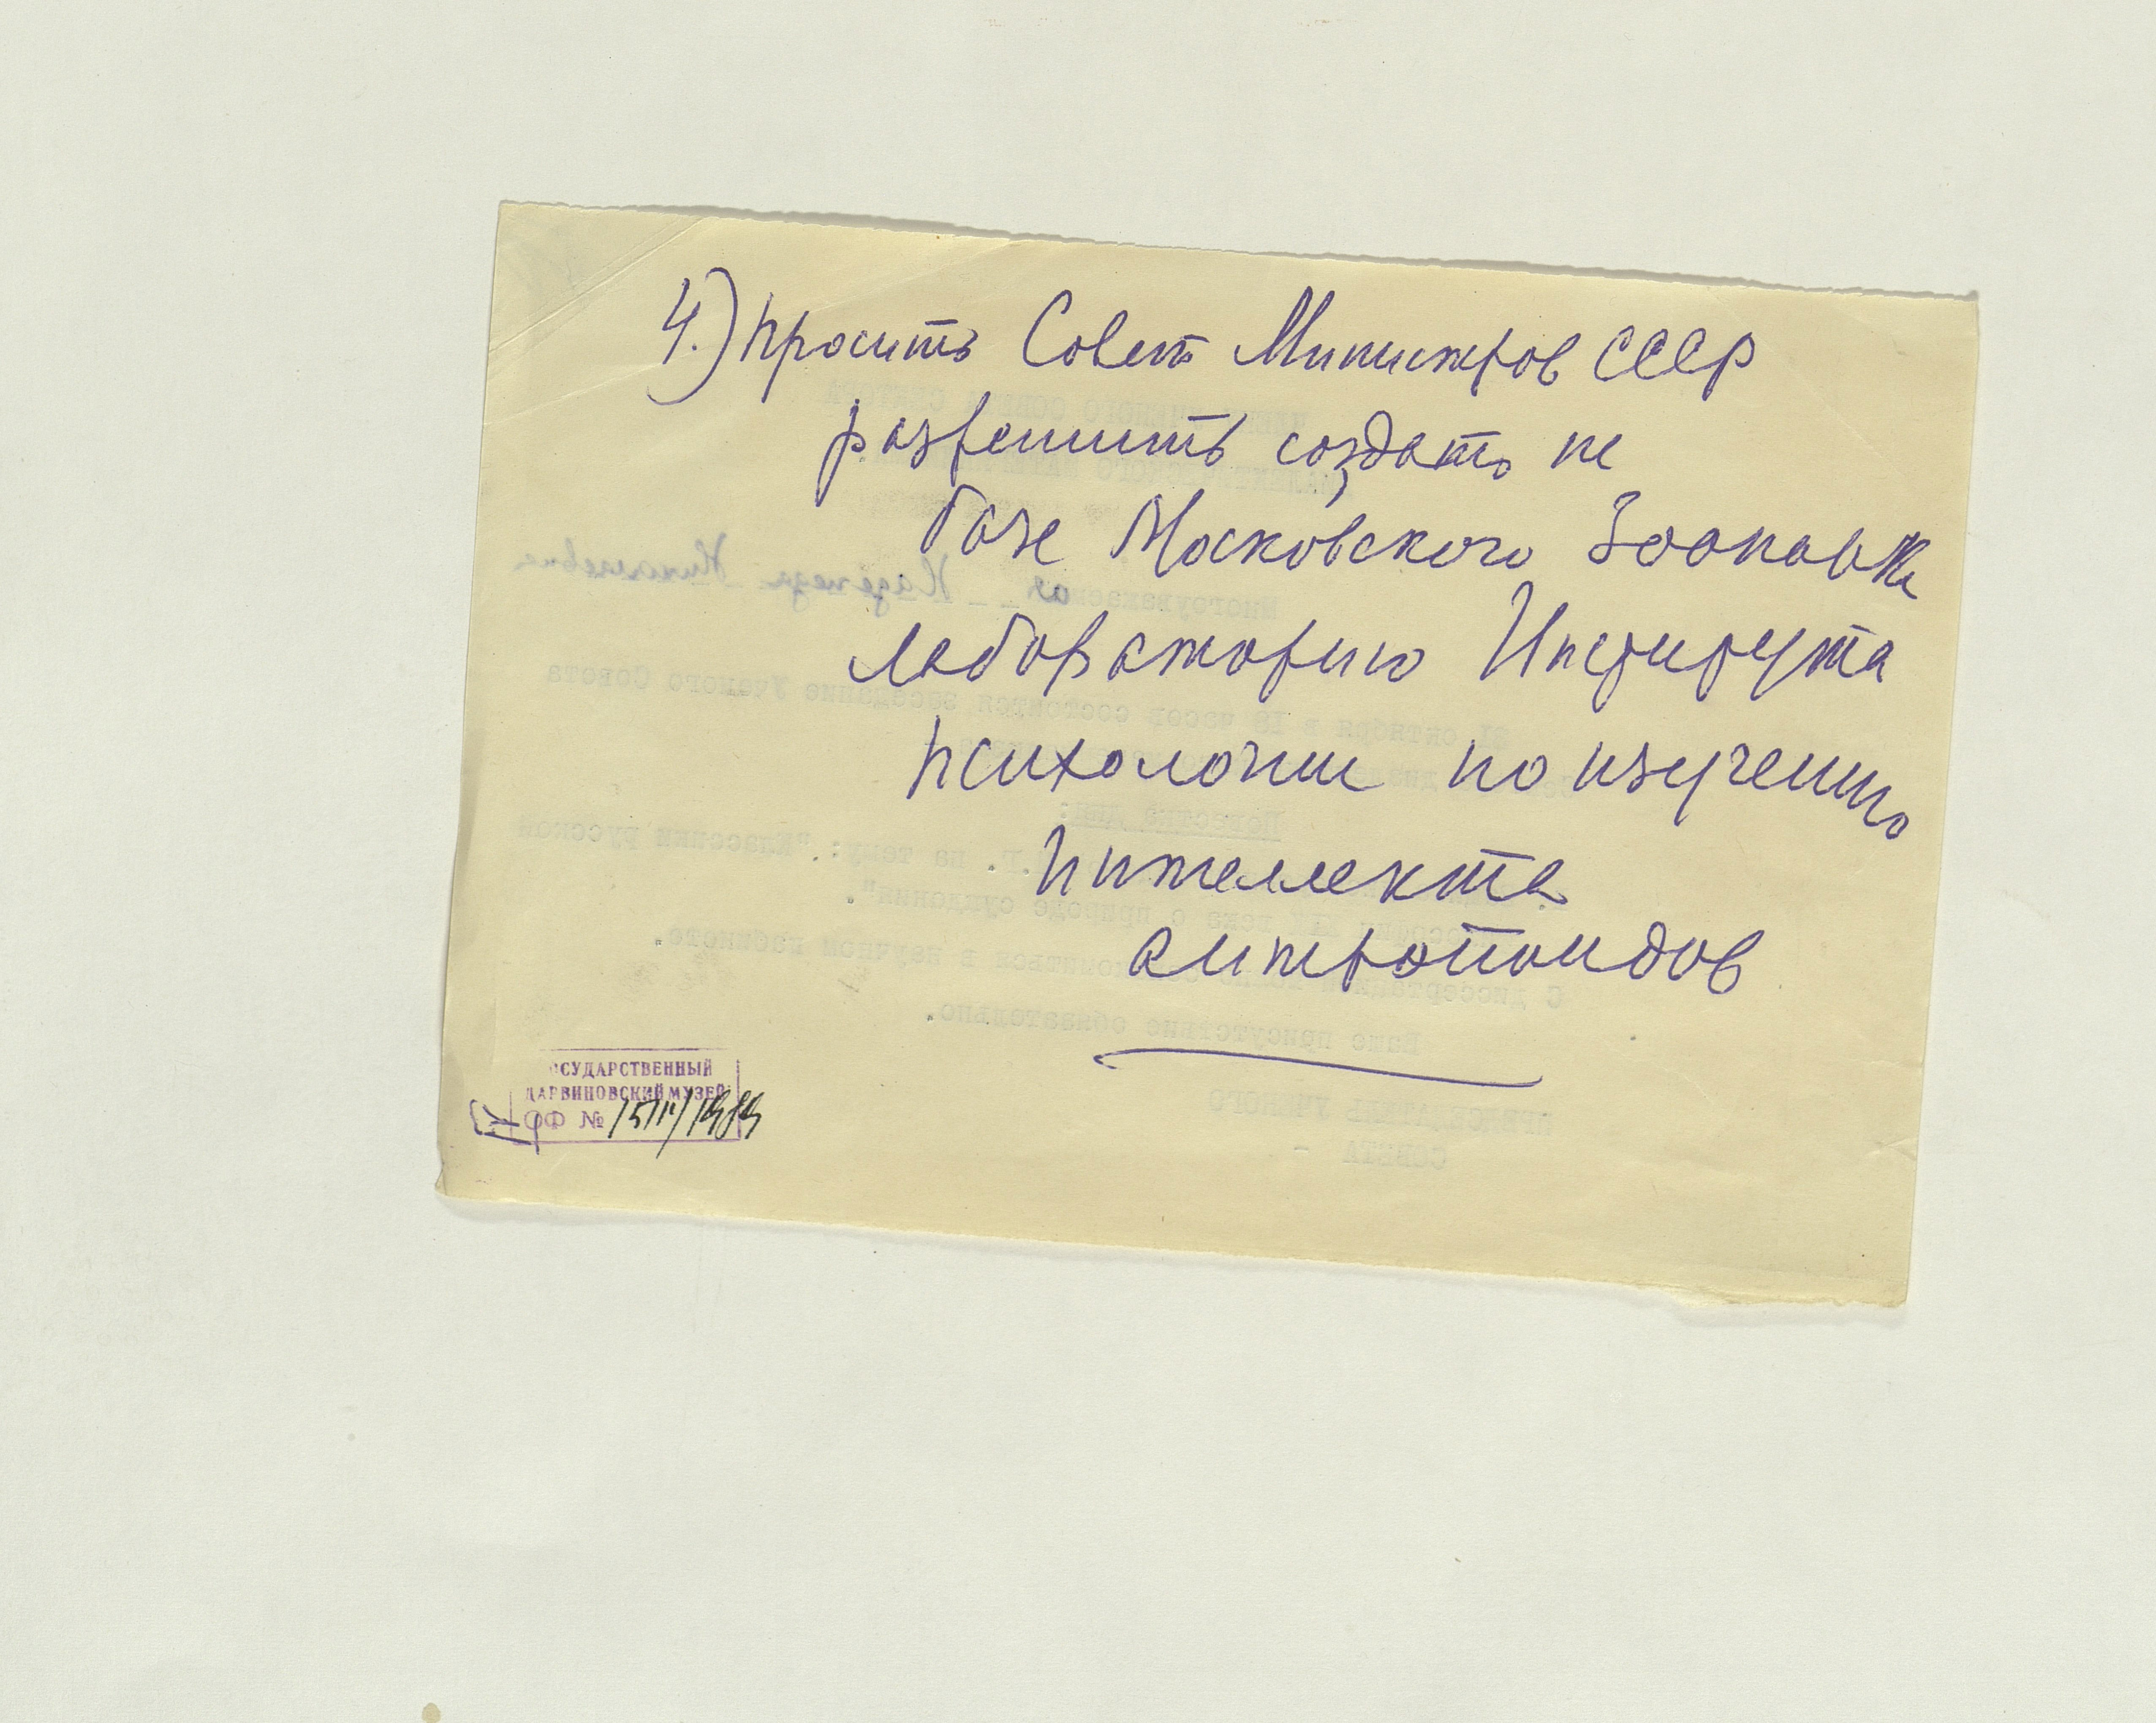 4.) Просить Совет Министров СССР
разрешить создать на
базе Московского Зоопарка
лабораторию Института
психологии по изучению
интеллекта
антропоидов
ОСУДАРСТВЕННЫЙ
ДАРВИНОВСКИЙ МУЗЕЙ
ОФ №